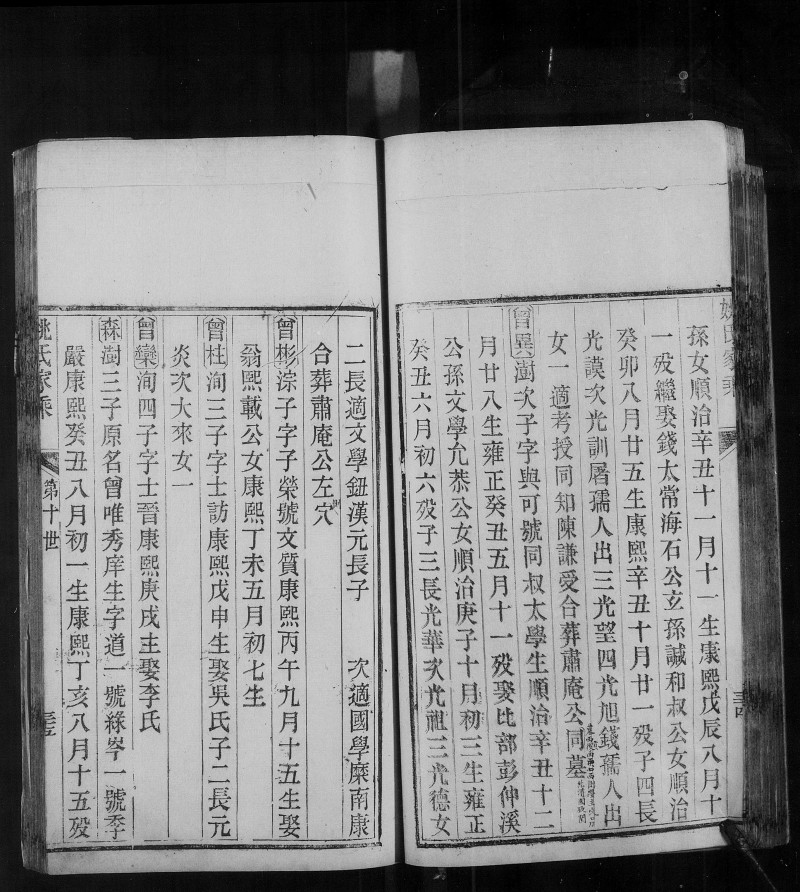 姚氏家乘
孫女順治辛丑十一月十一生康熙戊辰八月十
一歿繼娶錢太常海石公玄孫諴和叔公女順治
癸卯八月廿五生康熙辛丑十月廿一歿子四長
光謨次光訓屠孺人出三光望四光旭錢孺人出
女一適考授同知陳謙受合葬肅庵公同墓
曾異澍次子字與可號同叔太學生順治辛丑十二
月廿八生雍正癸丑五月十一歿娶比部彭仲溪
公孫文學允恭公女順治庚子十月初三生雍正
癸丑六月初六歿子三長光華次光祖三光德女
二長適文學鈕漢元長子 次適國學糜南康
合葬肅庵公左穴
曾彬淙子字子榮號文質康熙丙午九月十五生娶
翁熙載公女康熙丁未五月初七生
曾柱洵三子字士訪康熙戊申生娶吳氏子二長元
炎次大來女一
曾欒洵四子字士晉康熙庚戌生娶李氏
森澍三子原名曾唯秀庠生字道一號綠岑一號季
嚴康熙癸丑八月初一生康熙丁亥八月十五歿
姚氏家乘
第十世